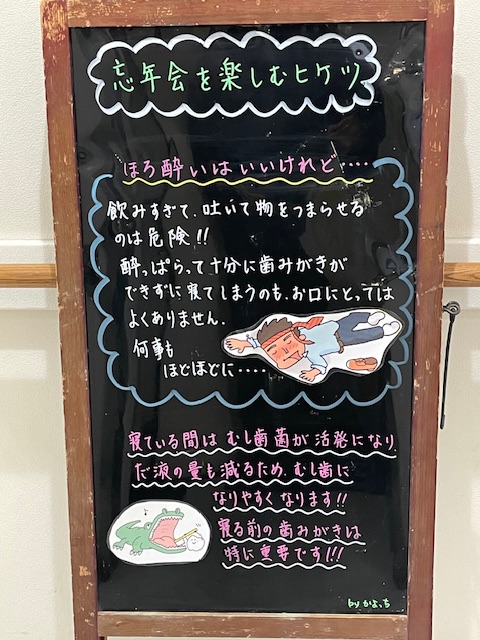 忘年会を楽しむヒケツ
ほろ酔いはいいけれど････
飲みすぎて、吐いて物をつまらせる
のは危険!!
酔っぱらって十分に歯みがきが
できずに寝てしまうのも、お口にとっては
よくありません。
何事も
ほどほどに････
寝ている間は むし歯菌が 活発になり
だ液の量も減るため、むし歯に
なりやすく なります!!
寝る前の歯みがきは
特に重要です!!!
by かよっち